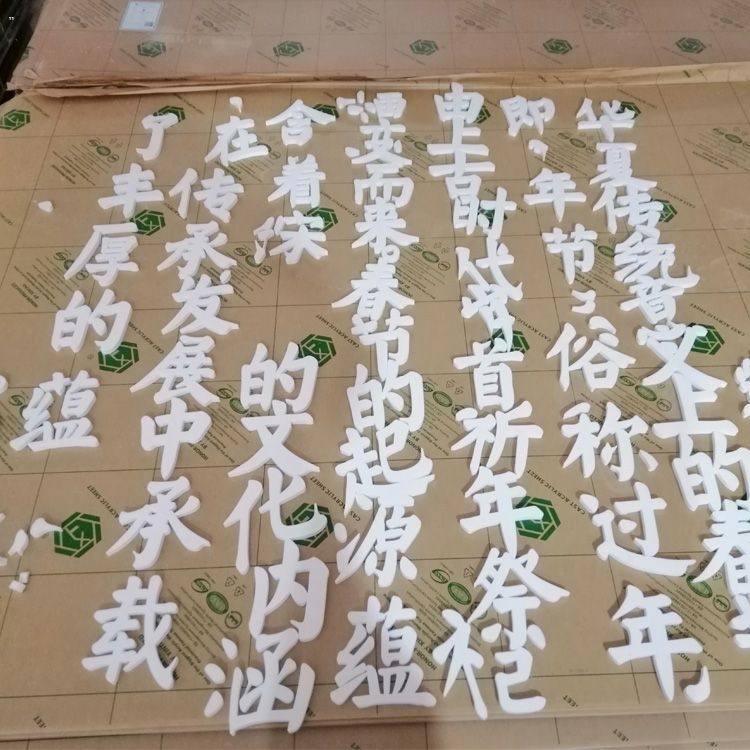 华夏传统意义上的春
即、年节，俗称过年
由上古时代岁首祈年祭祀
演变而来。春节的起源蕴
含着深的文化内涵
，在传承发展中承载
了丰厚的蕴
CAST ACRYLIC SHEET